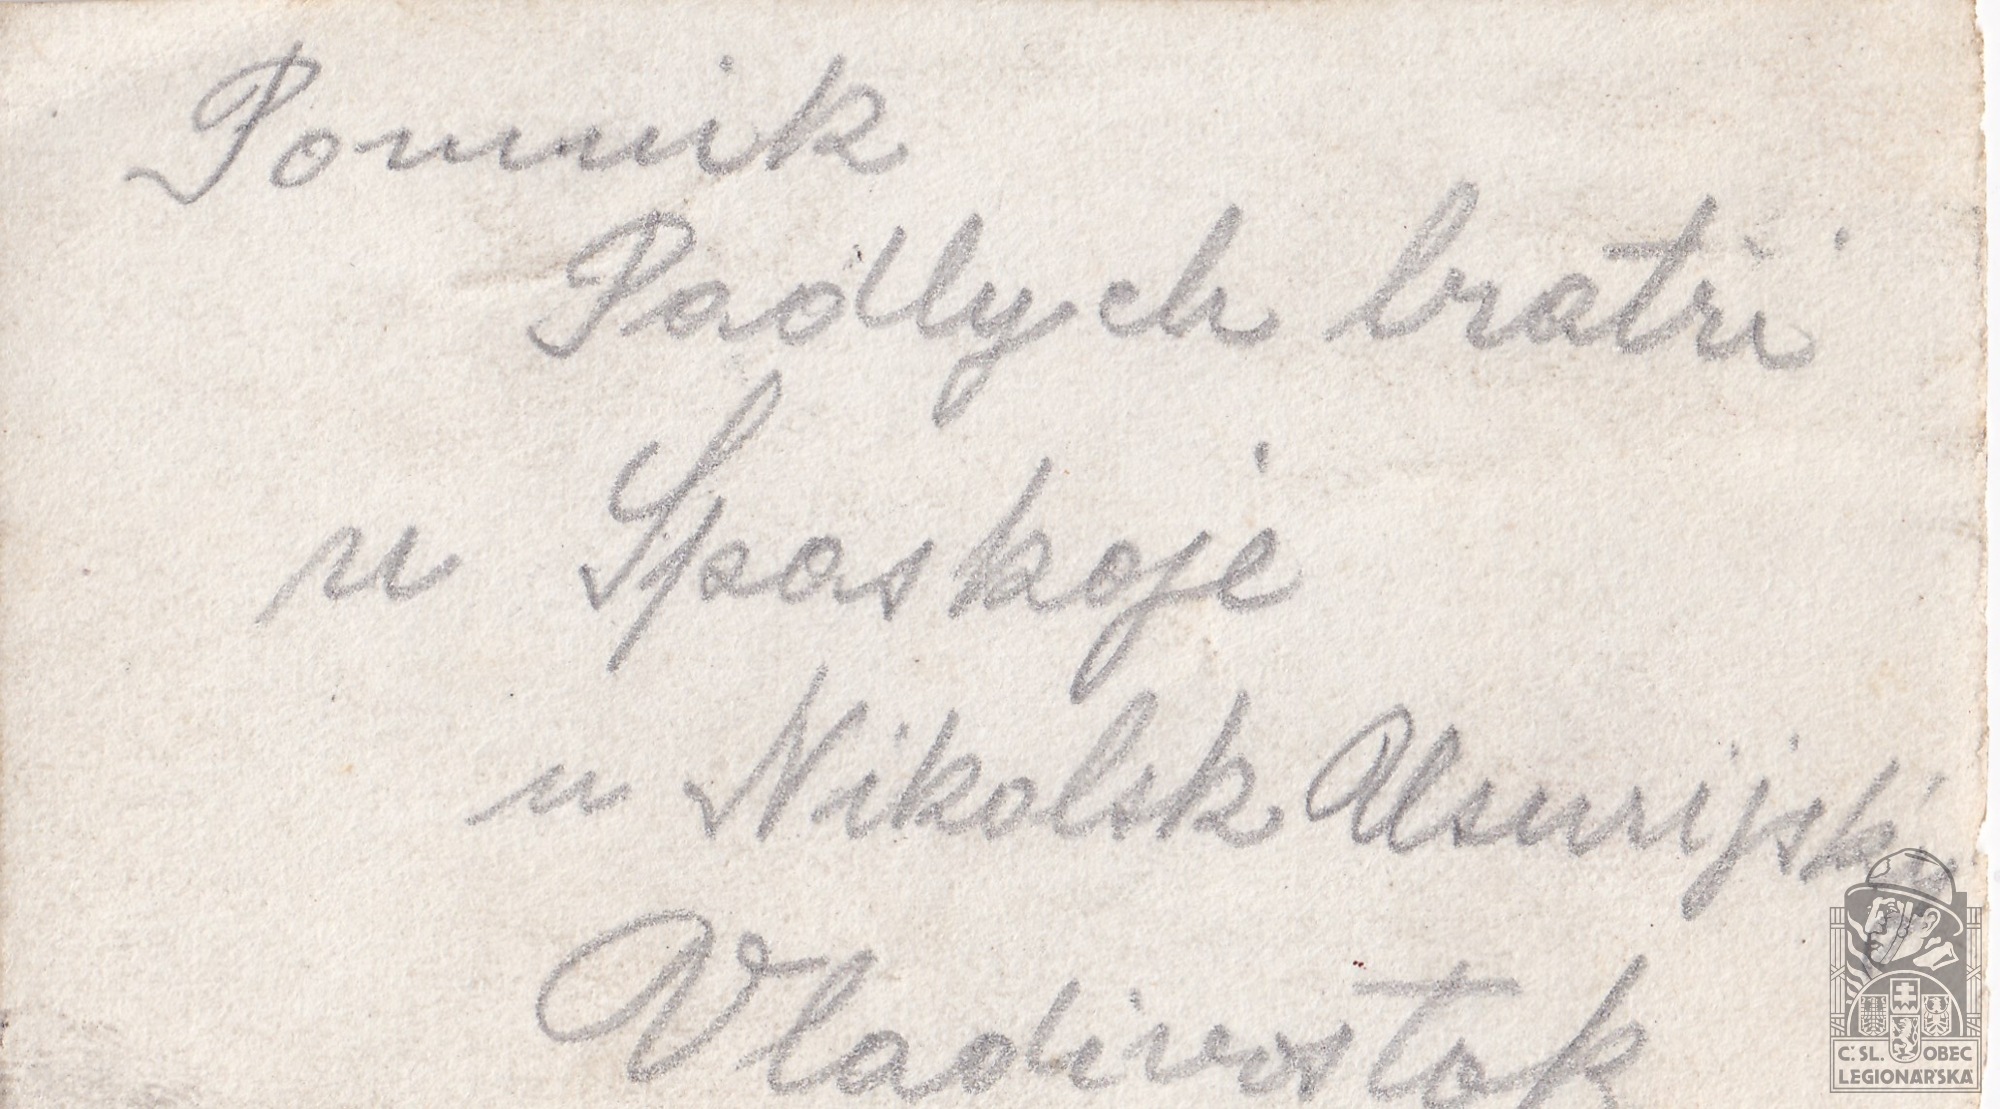 Pomnik
Padlych bratři
u Spaskoje
u Nikolsk Usurijsk
Vladivostok
Č.SL. OBEC
LEGIONÁŘSKÁ